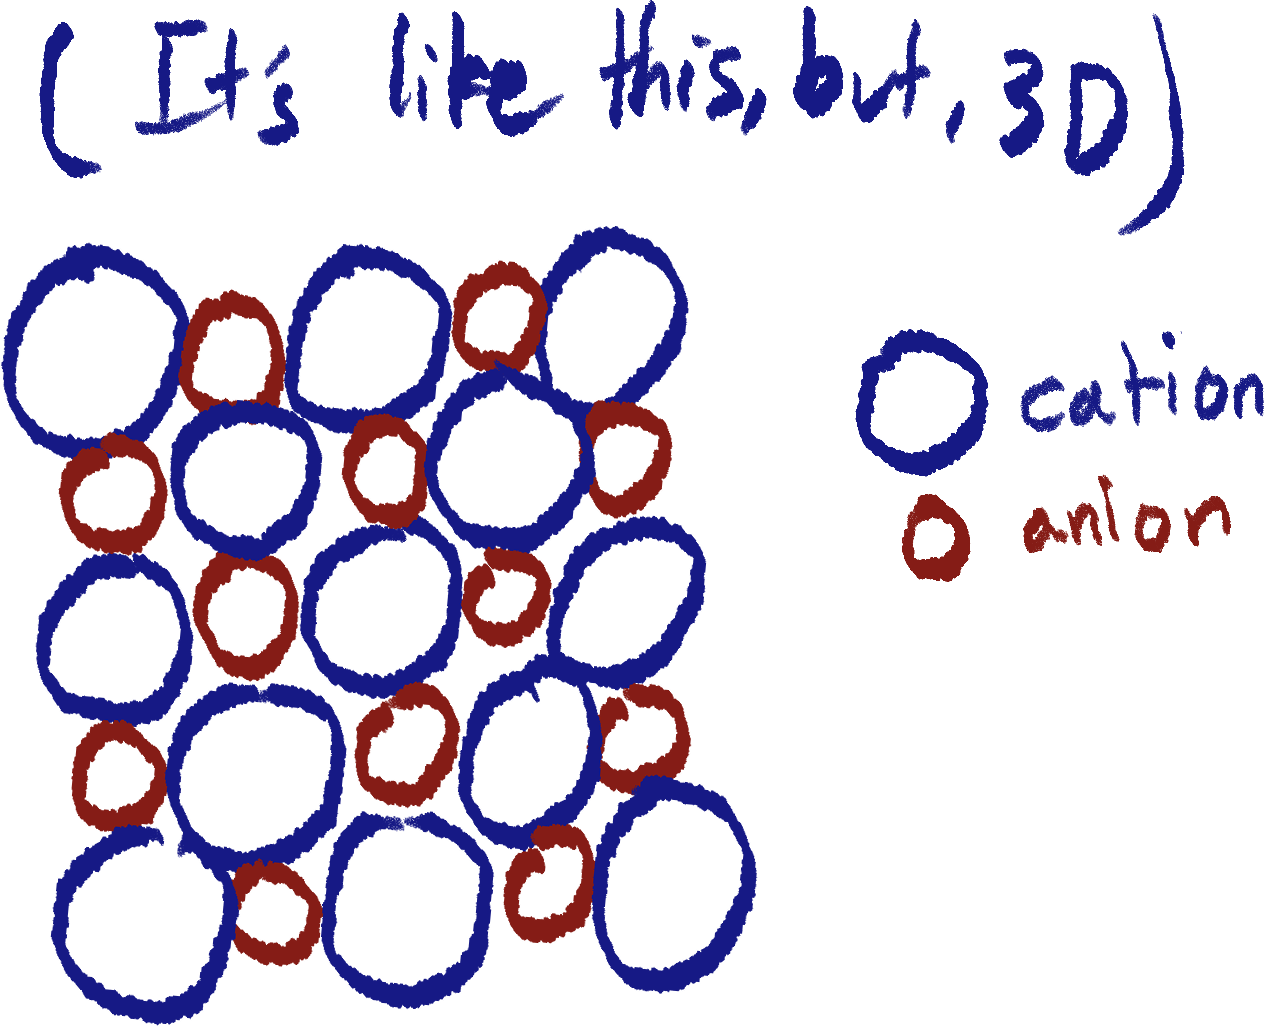 (It's like this, but, 3D)
cation
anion